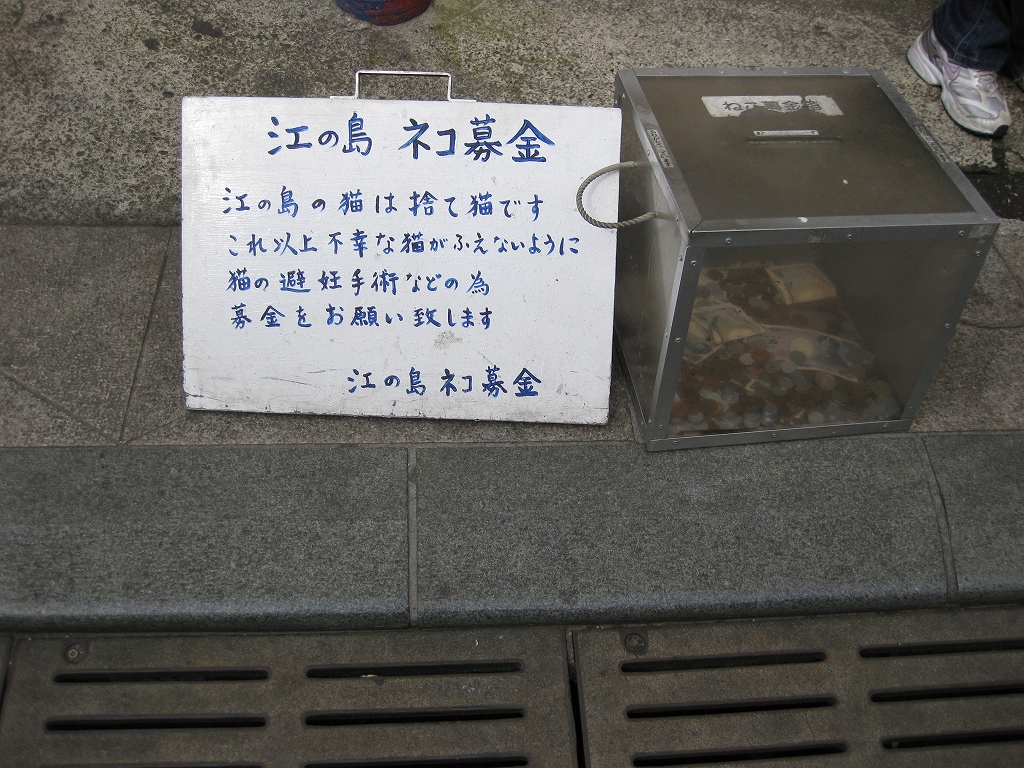 江の島 ネコ募金
江の島の猫は捨て猫です
これ以上不幸な猫がふえないように
猫の避妊手術などの為
募金をお願い致します
江の島 ネコ募金
ねこ募金箱